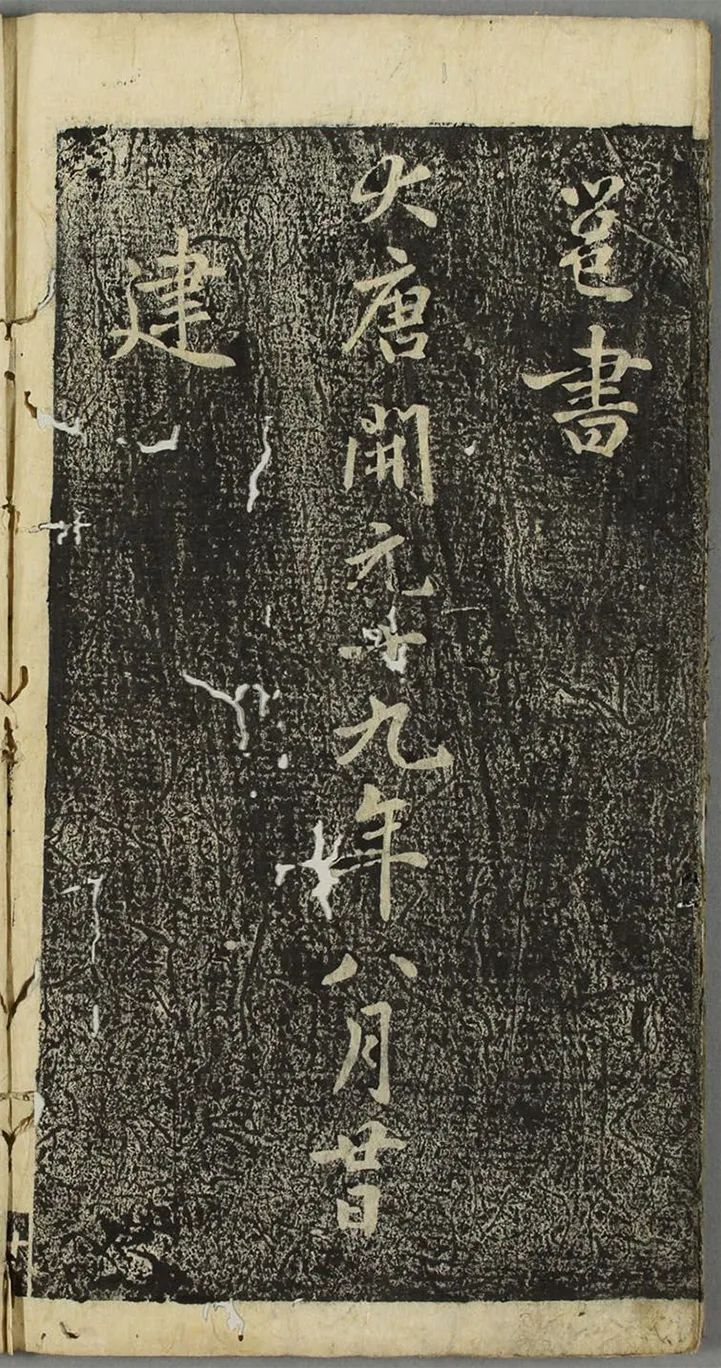 邕書
大唐開元廿九年八月廿日
建